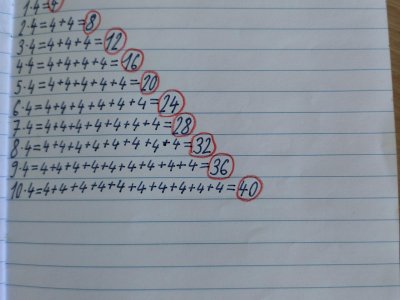 1·4=4
2·4=4+4=8
3·4=4+4+4=12
4·4=4+4+4+4=16
5·4=4+4+4+4+4=20
6·4=4+4+4+4+4+4=24
7·4=4+4+4+4+4+4+4=28
8·4=4+4+4+4+4+4+4+4=32
9·4=4+4+4+4+4+4+4+4+4=36
10·4=4+4+4+4+4+4+4+4+4+4=40